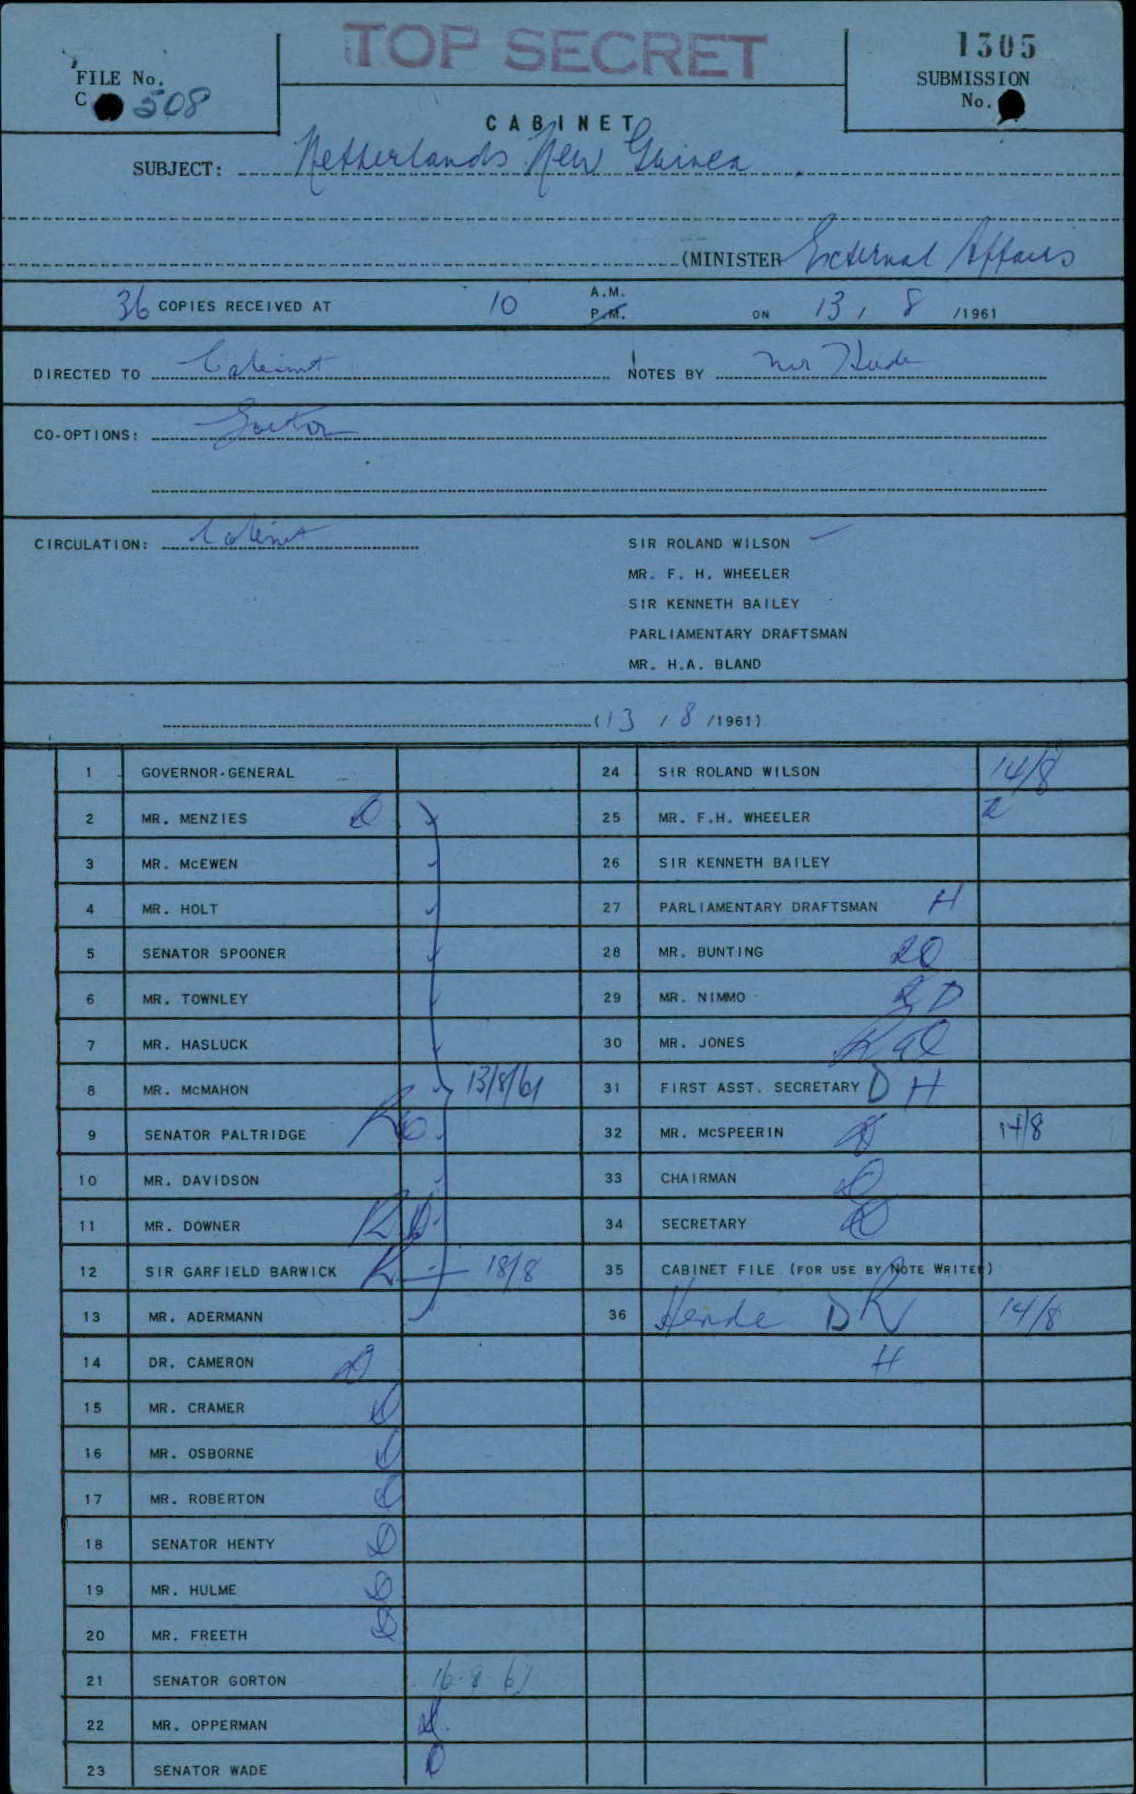 TOP SECRET
1305
FILE No.
C 508
SUBMISSION
No.
CABINET
SUBJECT: Netherlands New Guinea
(MINISTER External Affairs
36 COPIES RECEIVED AT 10 A.M. P.M. ON 13 / 8 /1961
DIRECTED TO Cabinet NOTES BY Mr
CO-OPTIONS: Gorton
CIRCULATION: Cabinet
SIR ROLAND WILSON
MR. F. H. WHEELER
SIR KENNETH BAILEY
PARLIAMENTARY DRAFTSMAN
MR. H.A. BLAND
(13 / 8 /1961)
1 GOVERNOR-GENERAL 24 SIR ROLAND WILSON 14/8
2 MR. MENZIES 25 MR. F.H. WHEELER
3 MR. McEWEN 26 SIR KENNETH BAILEY
4 MR. HOLT 27 PARLIAMENTARY DRAFTSMAN H
5 SENATOR SPOONER 28 MR. BUNTING
6 MR. TOWNLEY 29 MR. NIMMO
7 MR. HASLUCK 30 MR. JONES
8 MR. McMAHON 13/8/61 31 FIRST ASST. SECRETARY D H
9 SENATOR PALTRIDGE 32 MR. McSPEERIN 14/8
10 MR. DAVIDSON 33 CHAIRMAN
11 MR. DOWNER 34 SECRETARY
12 SIR GARFIELD BARWICK 18/8 35 CABINET FILE (FOR USE BY NOTE WRITER)
13 MR. ADERMANN 36 D R 14/8
14 DR. CAMERON H
15 MR. CRAMER
16 MR. OSBORNE
17 MR. ROBERTON
18 SENATOR HENTY
19 MR. HULME
20 MR. FREETH
21 SENATOR GORTON 16-8-61
22 MR. OPPERMAN
23 SENATOR WADE